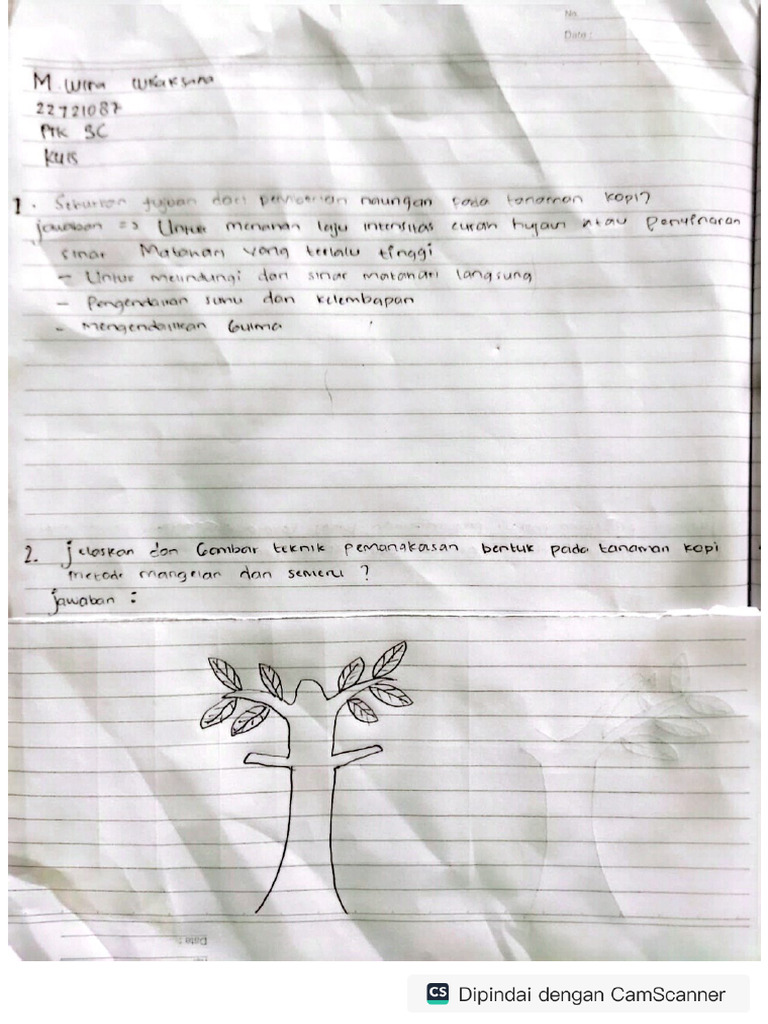 No
Date :
M. Wira Wicaksana
22721087
PTK 5C
Kuis
1. Sebutkan tujuan dari pemberian naungan pada tanaman kopi?
jawaban => Untuk menahan laju intensitas curah hujan atau Penyinaran
sinar Matahari yang terlalu tinggi
- Untuk melindungi dari sinar matahari langsung
- Pengendalian suhu dan kelembapan
- Mengendalikan Gulma
2. jelaskan dan Gambar teknik pemangkasan bentuk pada tanaman kopi
metode mangelan dan semeru ?
jawaban :
Date :
CS Dipindai dengan CamScanner